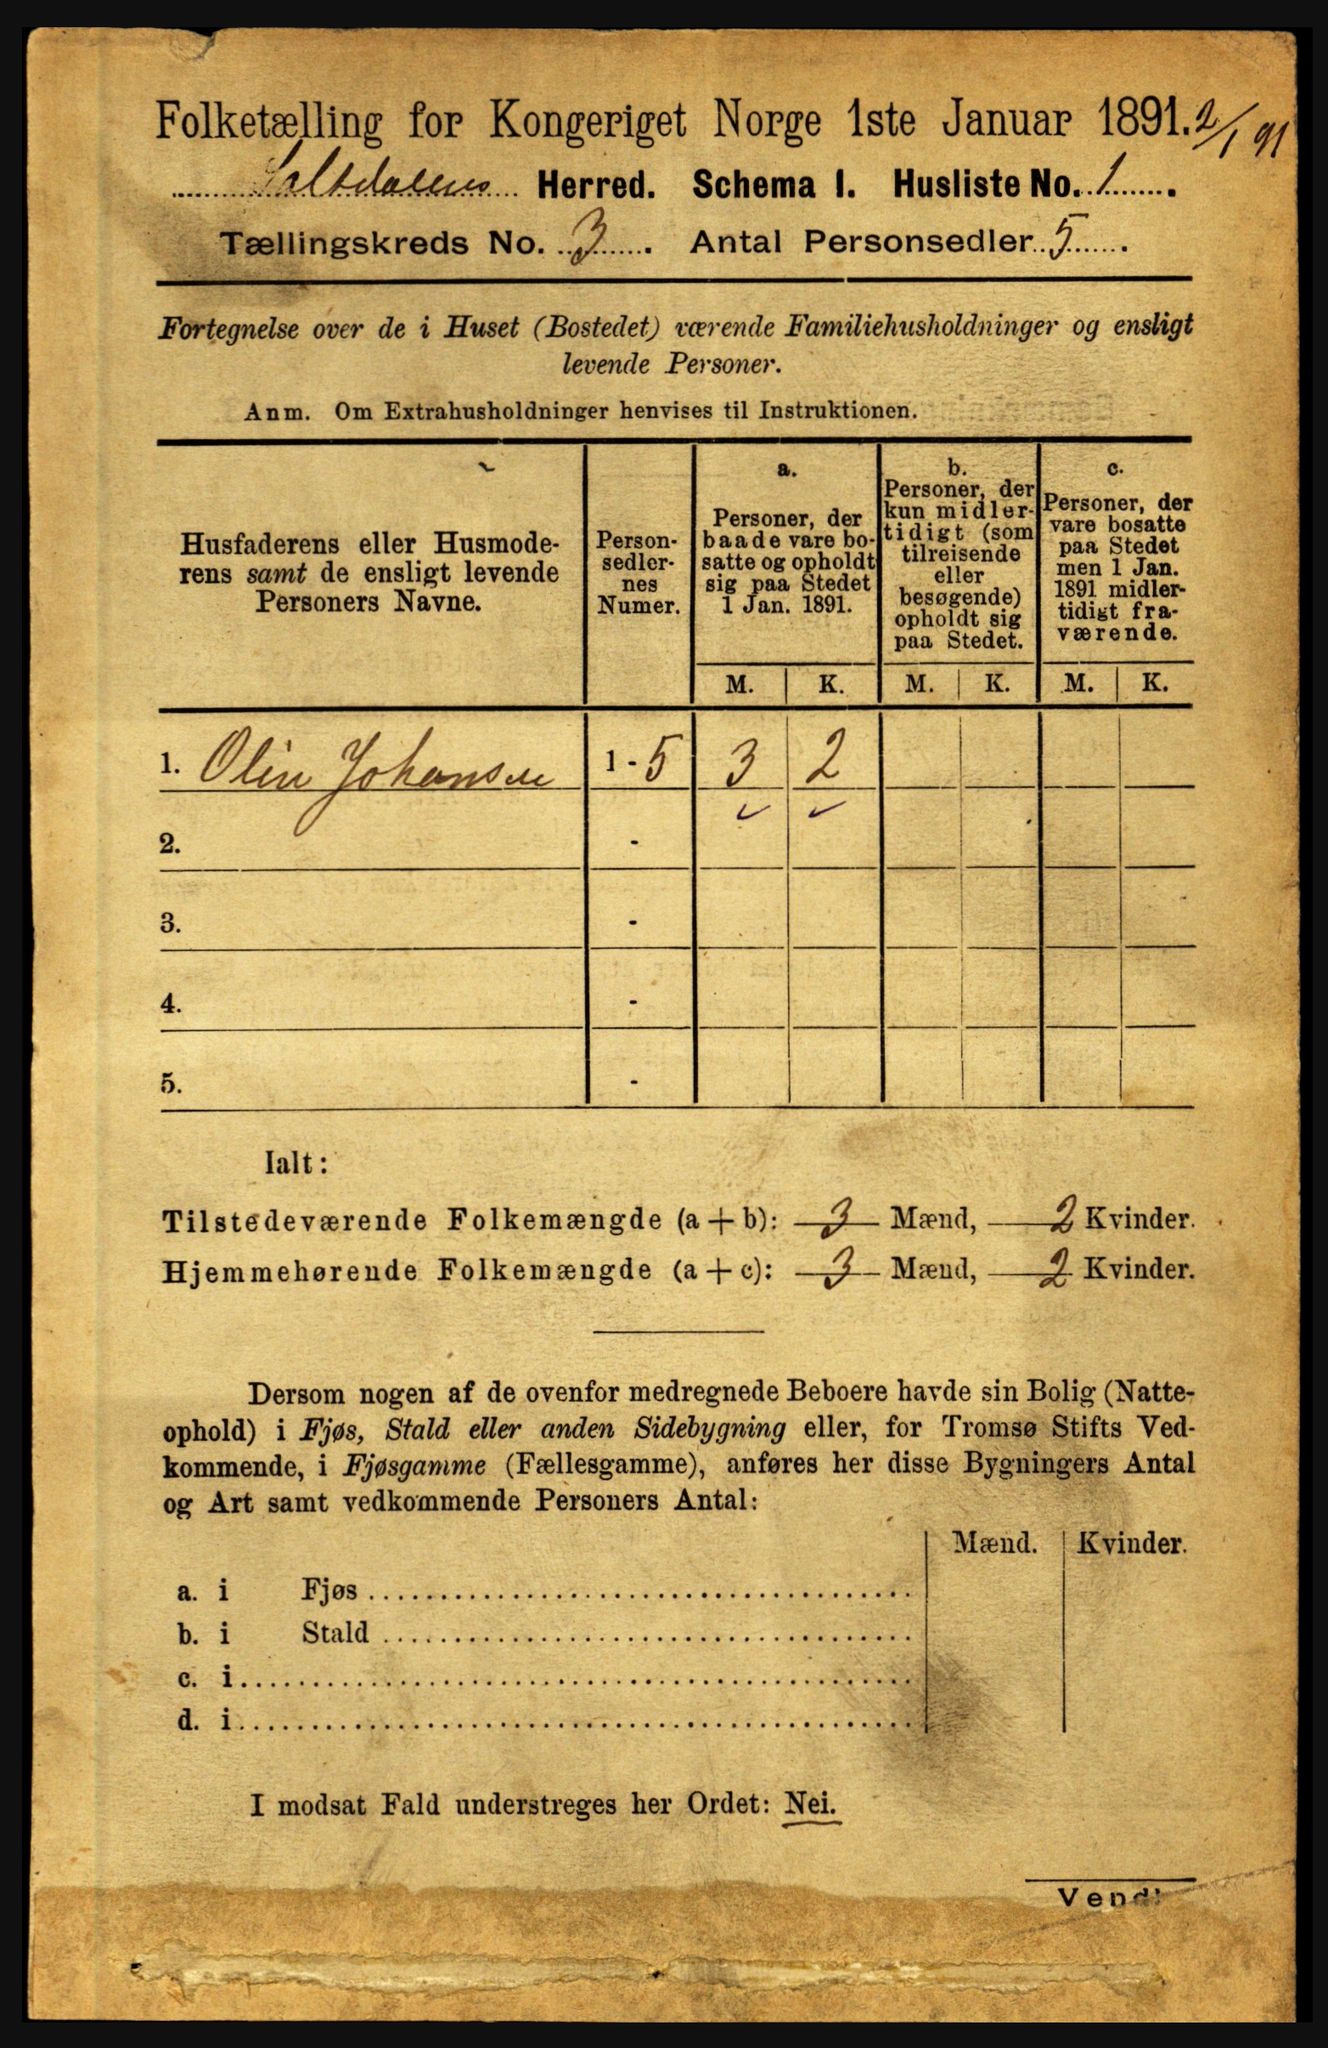 Folketælling for Kongeriget Norge 1ste Januar 1891. 2/1 91
Saltdalens Herred. Schema I. Husliste No. 1.
Tællingskreds No. 3. Antal Personsedler 5.
Fortegnelse over de i Huset (Bostedet) værende Familiehusholdninger og ensligt
levende Personer.
Anm. Om Extrahusholdninger henvises til Instruktionen.
Husfaderens eller Husmode-
rens samt de ensligt levende
Personers Navne.
Person-
sedler-
nes
Numer.
a.
Personer, der
baade vare bo-
satte og opholdt
sig paa Stedet
1 Jan. 1891.
b.
Personer, der
kun midler-
tidigt (som
tilreisende
eller
besøgende)
opholdt sig
paa Stedet.
c.
Personer, der
vare bosatte
paa Stedet
men 1 Jan.
1891 midler-
tidigt fra-
værende.
M. K. M. K. M. K.
1. Olin Johansen 1 - 5 3 2
2. -
3. -
4. -
5. -
Ialt:
Tilstedeværende Folkemængde (a + b): 3 Mænd, 2 Kvinder.
Hjemmehørende Folkemængde (a + c): 3 Mænd, 2 Kvinder.
Dersom nogen af de ovenfor medregnede Beboere havde sin Bolig (Natte-
ophold) i Fjøs, Stald eller anden Sidebygning eller, for Tromsø Stifts Ved-
kommende, i Fjøsgamme (Fællesgamme), anføres her disse Bygningers Antal
og Art samt vedkommende Personers Antal:
Mænd. Kvinder.
a. i Fjøs
b. i Stald
c. i
d. i
I modsat Fald understreges her Ordet: Nei.
Vend!